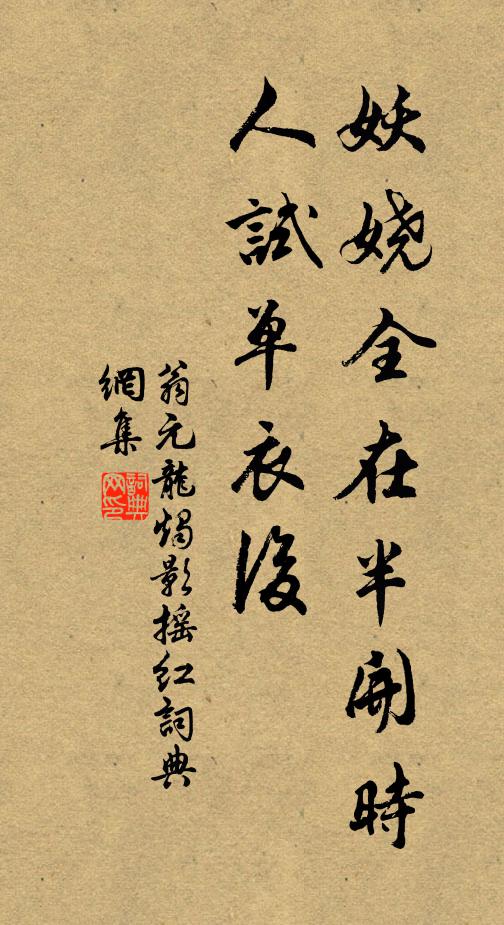 妖娆全在半開時
人試单衣後
翁元龍燭影摇红詞典
網集
詞典
网印